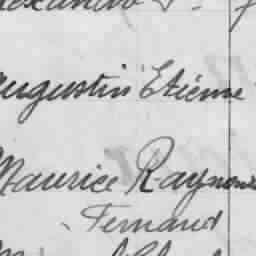 Augustin Etienne
Maurice Raymond
Fernand